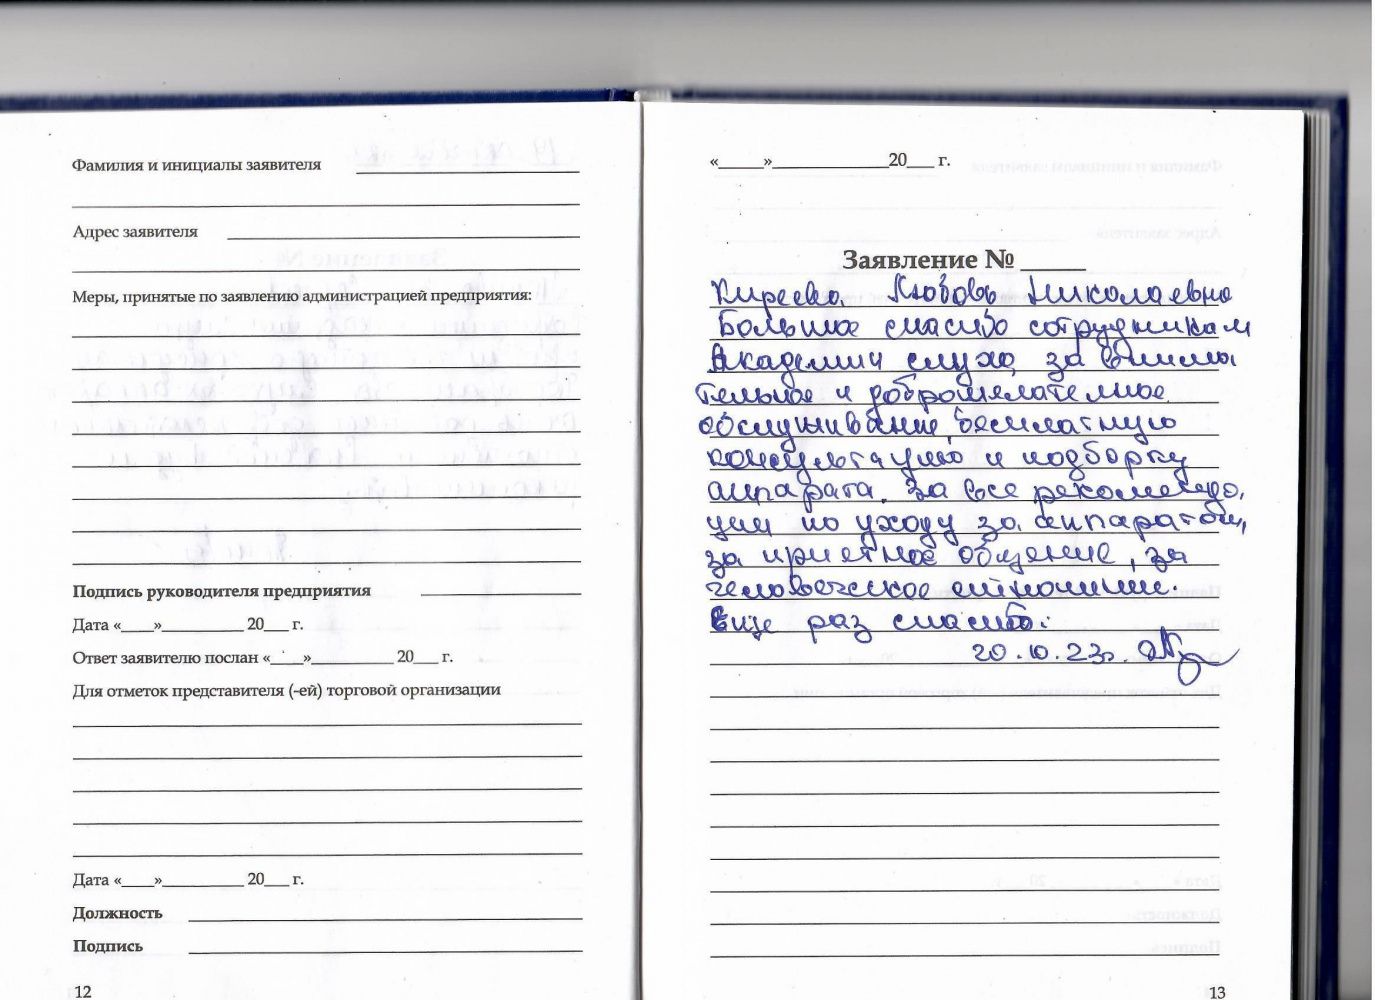 Фамилия и инициалы заявителя
Адрес заявителя
Меры, принятые по заявлению администрацией предприятия:
Подпись руководителя предприятия
Дата «____»__________ 20___ г.
Ответ заявителю послан «____»__________ 20___ г.
Для отметок представителя (-ей) торговой организации
Дата «____»__________ 20___ г.
Должность
Подпись
12
«____»__________20___ г.
Заявление № ____
Киреева Любовь Николаевна
Большое спасибо сотрудникам
Академии слуха за внима
тельное и доброжелательное
обслуживание, бесплатную
консультацию и подборку
аппарата. За все рекоменда,
ции по уходу за аппаратом,
за приятное общение, за
человеческое отношение.
Еще раз спасибо.
20.10.23г.
13